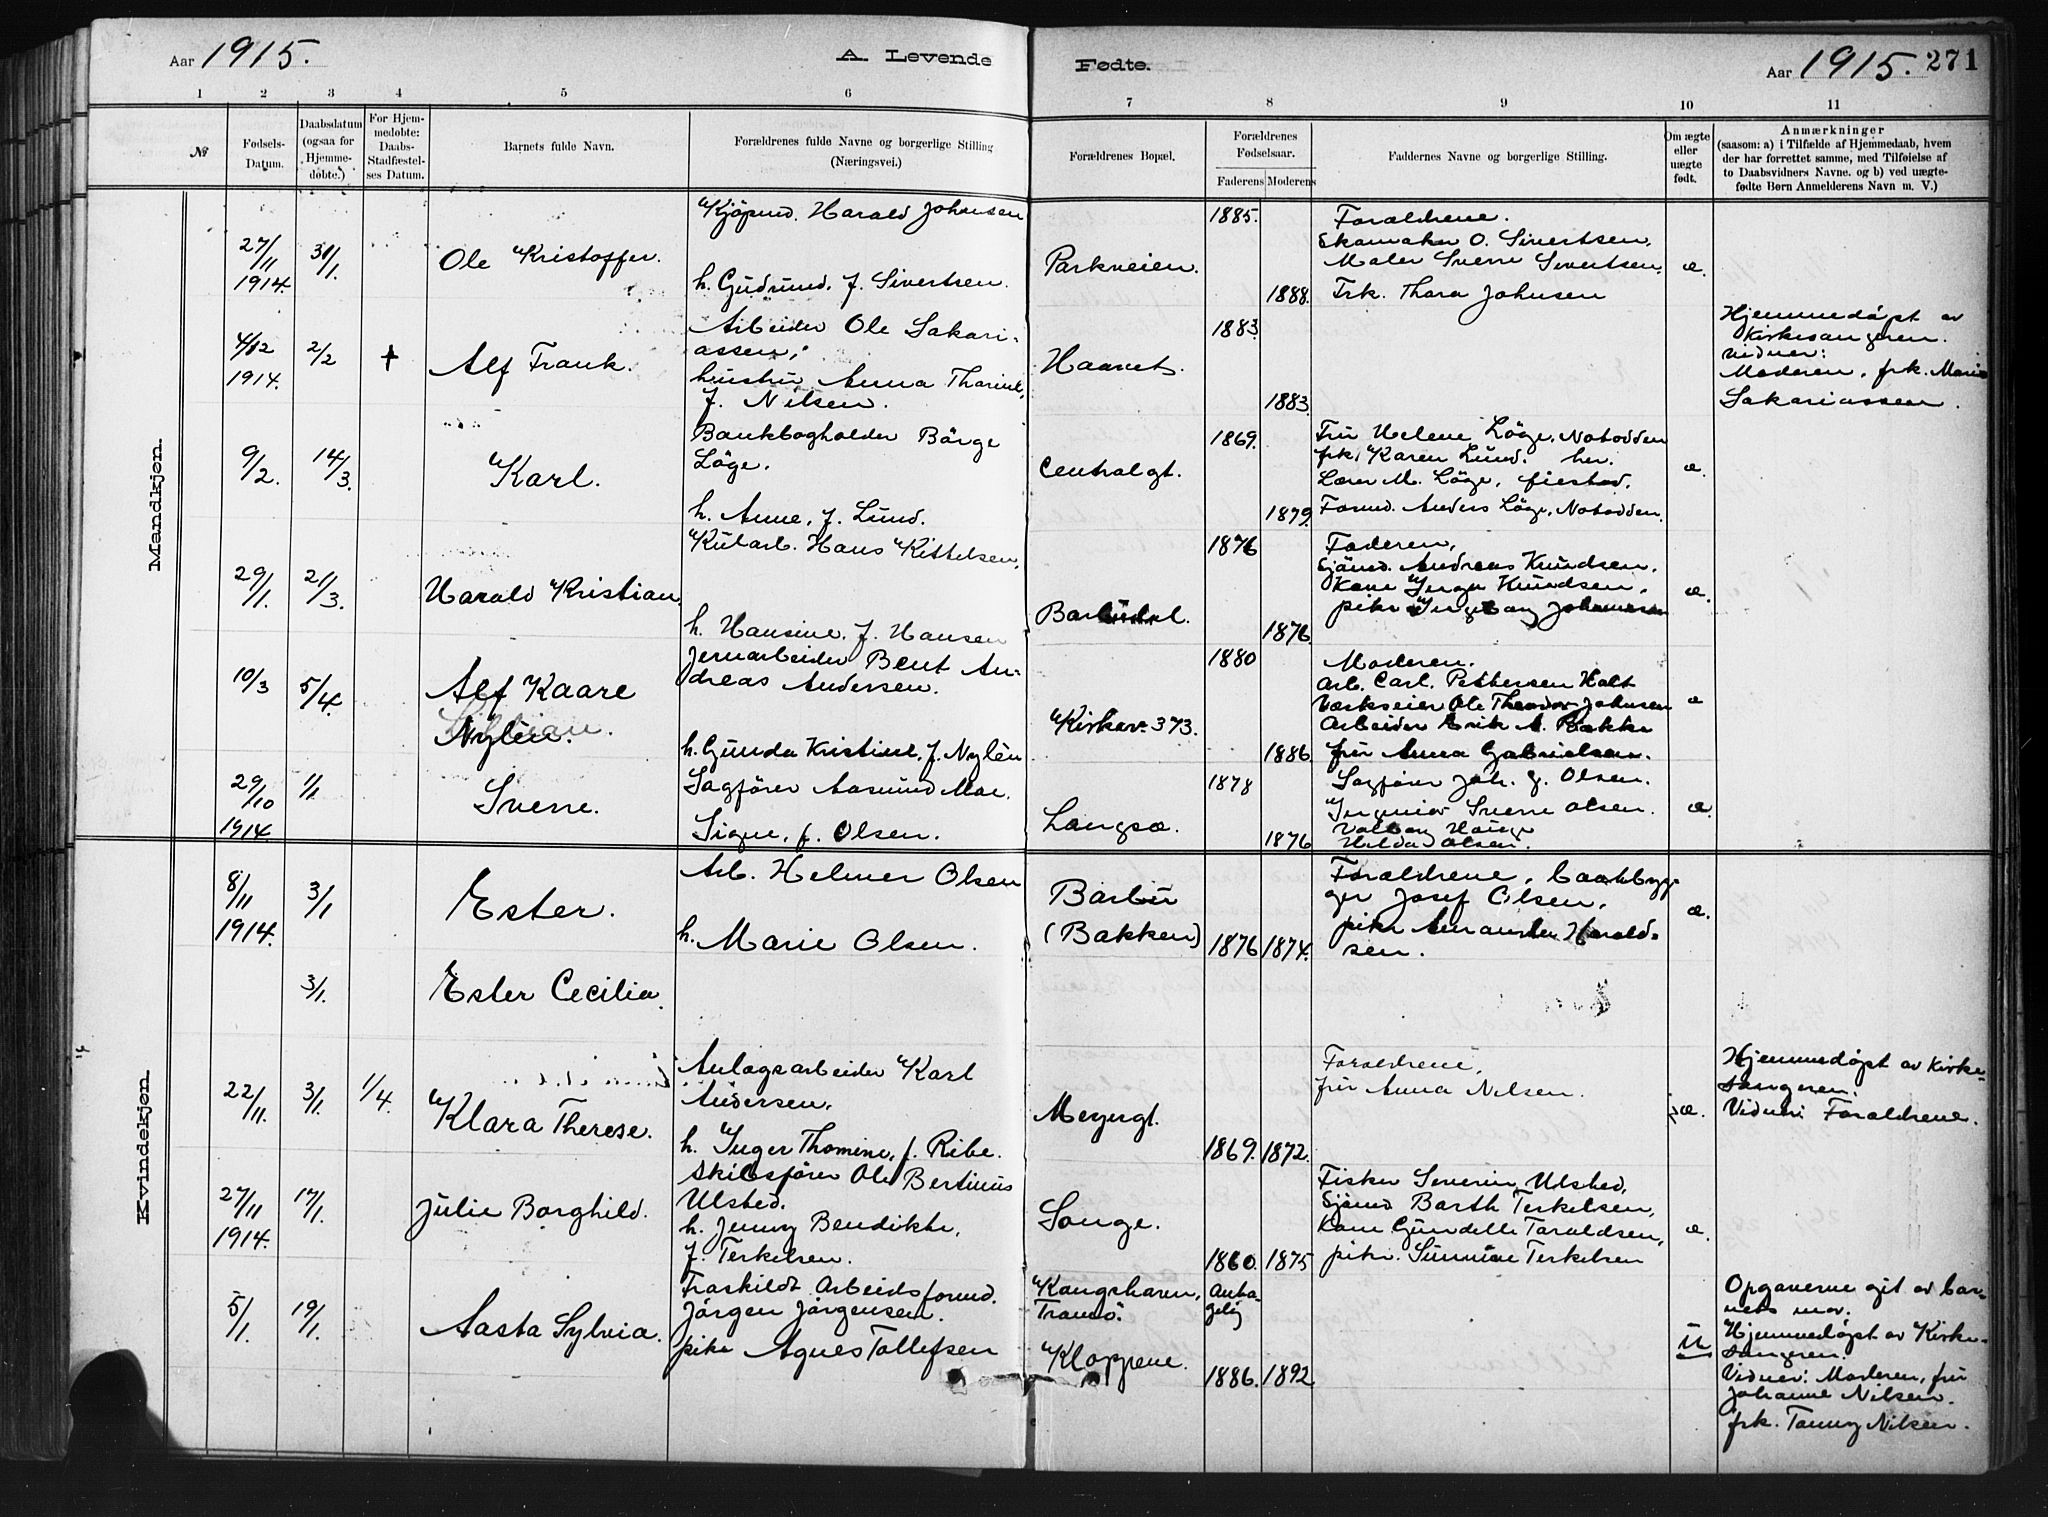 Aar 1915.
A. Levende
Fødte.
Aar 1915. 271
1 2 3 4 5 6 7 8 9 10 11
No
Fødsels-
Datum.
Daabsdatum
(ogsaa for
Hjemme-
døbte.)
For Hjem-
medøbte:
Daabs-
Stadfæstel-
ses Datum.
Barnets fulde Navn.
Forældrenes fulde Navne og borgerlige Stilling
(Næringsvei.)
Forældrenes Bopæl.
Forældrenes
Fødselsaar.
Faderens Moderens
Faddernes Navne og borgerlige Stilling.
Om ægte
eller
uægte
født.
Anmærkninger
(saasom: a) i Tilfælde af Hjemmedaab, hvem
der har forrettet samme, med Tilføielse af
to Daabsvidners Navne. og b) ved uægte-
fødte Børn Anmelderens Navn m. V.)
Mandkjøn.
27/11
1914.
31/1.
Ole Kristoffer.
Kjøpmd. Harald Johansen
h. Gudrund, f. Sivertsen.
Parkveien.
1885.
1888.
Foraldrene.
Skomaker O. Sivertsen,
Maler Sverre Sivertsen,
Frk. Thora Johnsen
æ.
4/12
1914.
2/2
+
Alf Frank.
Arbeider Ole Sakari-
assen,
hustru Anna Thorine,
f. Nilsen.
Haavet.
1883.
1883.
Hjemmedøpt av
Kirkesangeren.
Vidner:
Moderen, frk. Marie
Sakariassen.
9/2.
14/3.
Karl.
Bankbogholder Börge
Löge.
h. Anne, f. Lund.
Centralgt.
1869.
1879.
Fru Helene Löge, Notodden
frk. Karen Lund. her.
Lærer M. Löge, fiestad.
Formd. Anders Löge, Notodden.
æ.
29/1.
21/3.
Harald Kristian.
Kularb. Hans Kittelsen,
h. Hansine, f. Hansen
Barbudal.
1876
1876.
Faderen,
Sjömd. Andreas Knudsen,
Kone Inga Knudsen,
pike Ingeborg Johannesen
æ.
10/3
5/4.
Alf Kaare
Nylén.
Jernarbeider Bent An-
dreas Andersen.
h. Gunda Kristine, f. Nylén
Kirkev. 373.
1880
1886
Moderen.
Arb. Carl. Pettersen Holt
Værkseier Ole Theodor Johnsen
Arbeider Erik A. Bakke
fru Anna Gabrielsen.
æ
29/10
1914.
1/1.
Sverre.
Sagförer Aasmund Moe.
Signe, f. Olsen.
Langsæ.
1878
1876
Sagförer Joh. G. Olsen.
Ingeniør Sverre Olsen.
Valborg Hauge
Hilda Olsen.
æ.
Kvindekjøn.
8/11
1914.
3/1
Ester.
Arb. Helmer Olsen
h. Marie Olsen.
Barbu
(Bakken)
1876 1874.
Foraldrene, baatbyg-
ger Josef Olsen,
pike Amanda Harald-
sen.
æ.
3/1.
Ester Cecilia.
22/11.
3/1.
1/4.
Klara Therese.
Anlagsarbeider Karl
Andersen.
h. Inger Thomine, f. Ribe.
Meyergt.
1869. 1872.
Foraldrene,
fru Anna Nilsen.
æ.
Hjemmedøpt av Kirke-
sangeren.
Vidner: Foraldrene.
27/11
1914.
17/1.
Julie Borghild.
Skibsförer Ole Bertinius
Ulsted.
h. Jenny Bendikte,
f. Terkelsen.
Songe.
1860. 1875
Fisker Severin Ulsted,
Sjömd Barth Terkelsen,
Kone Gundelle Taraldsen,
pike. Sunniva Terkelsen
æ.
5/1.
19/1.
Aasta Sylvia.
Fraskildt Arbeidsformd.
Jörgen Jörgensen.
pike Agnes Tollefsen
Kongshavn,
Tromö.
Kloppene.
Anta-
gelig
1886. 1892
u
Opgaverne git av bar-
nets mor.
Hjemmedøpt av Kirke-
sangeren.
Vidner: Moderen, fru
Johanne Nilsen.
frk. Tanny Nilsen.